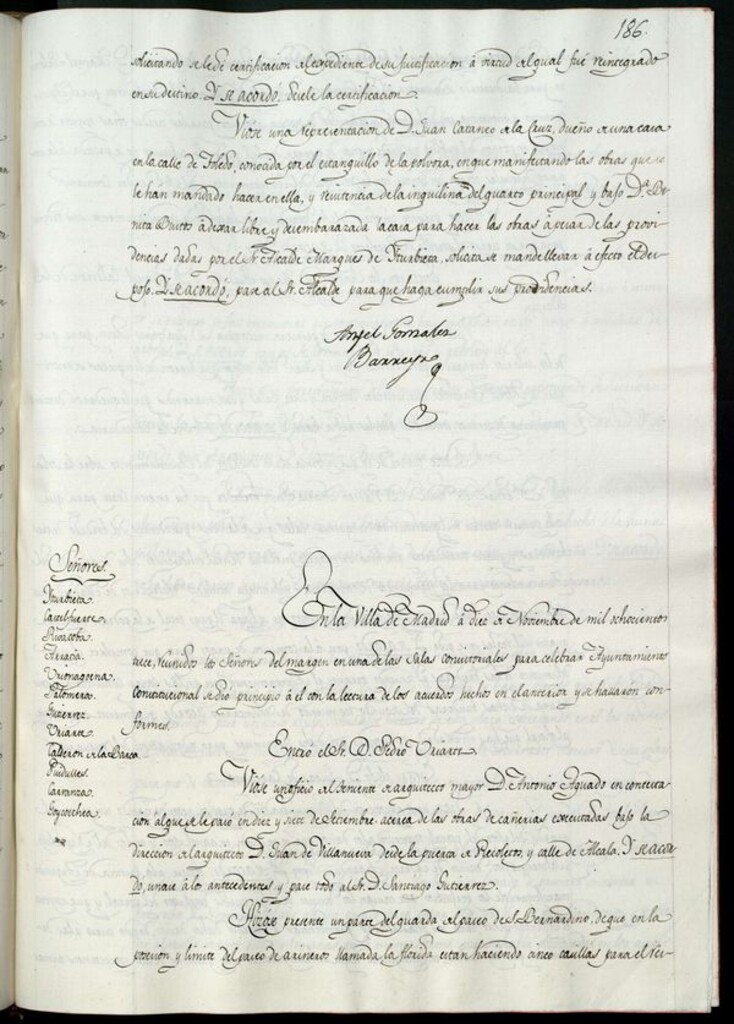 186.
solicitando se le dé certificacion del expediente de su justificacion á virtud del qual fué reintegrado
en su destino. Y se acordó, désele la certificacion.
Vióse una representacion de D. Juan Cataneo de la Cruz, dueño de una casa
en la calle de Toledo, conocida por el estanquillo de la polvora, en que manifestando las obras que se
le han mandado hacer en ella, y resistencia de la inquilina del quarto principal y bajo D.ª Be-
nita Bustos á dexar libre y desembarazada la casa para hacer las obras á pesar de las provi-
dencias dadas por el Sr. Alcalde Marques de Yturbieta, solicita se mande llevar á efecto el des-
pojo. Y se acordó, pase al Sr. Alcalde para que haga cumplir sus providencias.
Angel Gonzalez
Barreyro
Señores.
Yturbieta.
Castelfuerte.
Rivacoba.
Arnacia.
Urionagoena.
Palomera.
Gutierrez.
Uriarte.
Calderon de la Barca.
Puidulles.
Carranza.
Goycoechea.
En la Villa de Madrid á diez de Noviembre de mil ochocientos
trece, reunidos los Señores del margen en una de las salas consistoriales para celebrar Ayuntamiento
Constitucional se dió principio á el con la lectura de los acuerdos hechos en el anterior y se hallaron con-
formes.
Entró el Sr. D. Pedro Uriarte.
Vióse un oficio del teniente de arquitecto mayor D. Antonio Aguado en contexta-
cion al que se le pasó en diez y siete de Setiembre acerca de las obras de cañerias executadas bajo la
direccion del arquitecto D. Juan de Villanueva desde la puerta de Recoletos, y calle de Alcala. Y se acor-
dó, unase á los antecedentes y pase todo al Sr. D. Santiago Gutierrez.
Hizose presente un parte del guarda del paseo de S. Bernardino, de que en la
posesion y limite del paseo de areneros llamada la florida estan haciendo cinco casillas para el res-